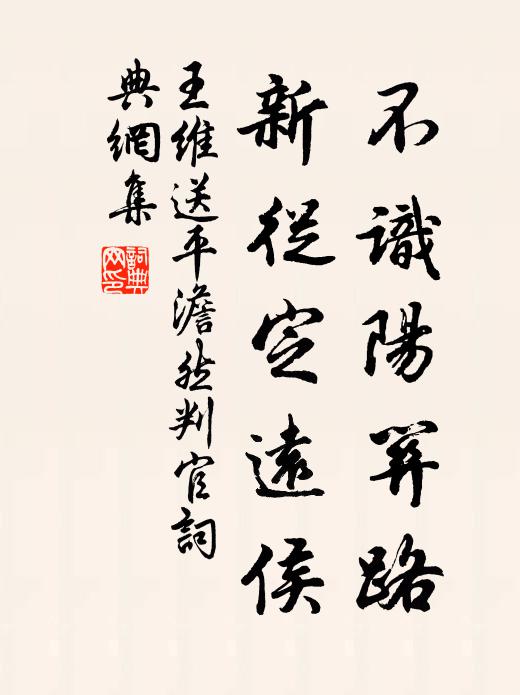 不識陽關路
新從定遠侯
王維送平澹然判官詞
典網集
詞典
網印